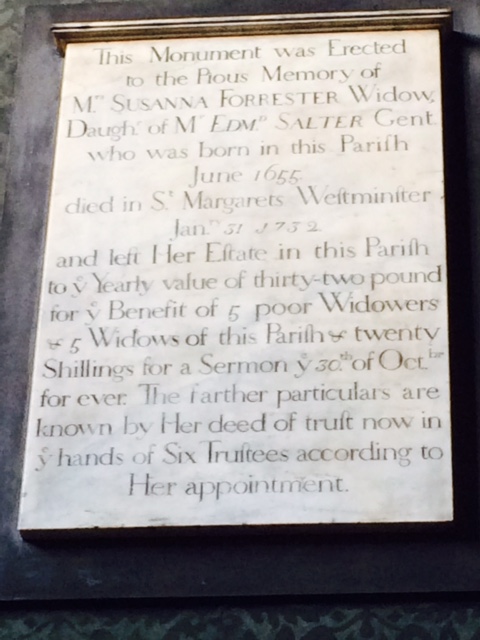 This Monument was Erected
to the Pious Memory of
Mrs SUSANNA FORRESTER Widow,
Daughr of Mr EDMD SALTER Gent
who was born in this Pariſh
June 1655
died in St Margarets Weſtminſter
Janry 31 1732
and left Her Eſtate in this Pariſh
to ye Yearly value of thirty-two pound
for ye Benefit of 5 poor Widowers
& 5 Widows of this Pariſh & twenty
Shillings for a Sermon ye 30th of Octber
for ever. The farther particulars are
known by Her deed of truſt now in
ye hands of Six Truſtees according to
Her appointment.